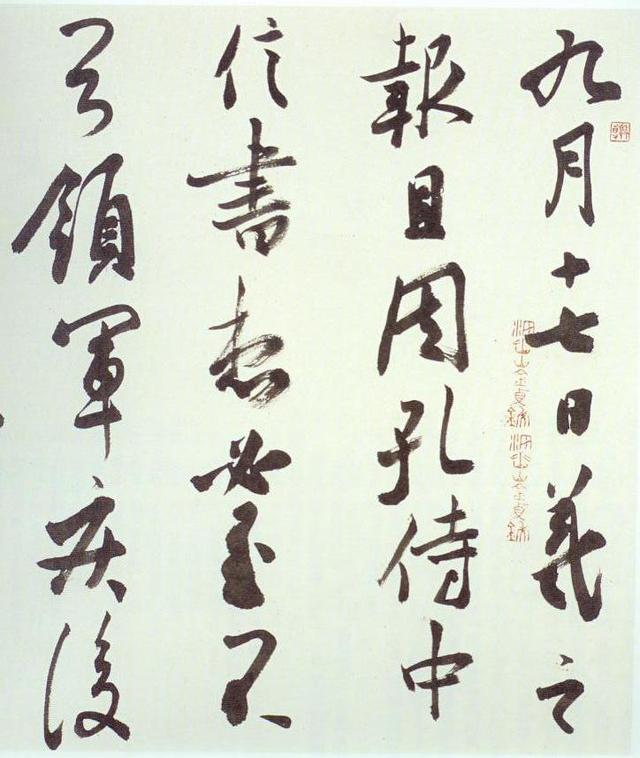 九月十七日羲之
報且因孔侍中
信書想必至不
知領軍疾後